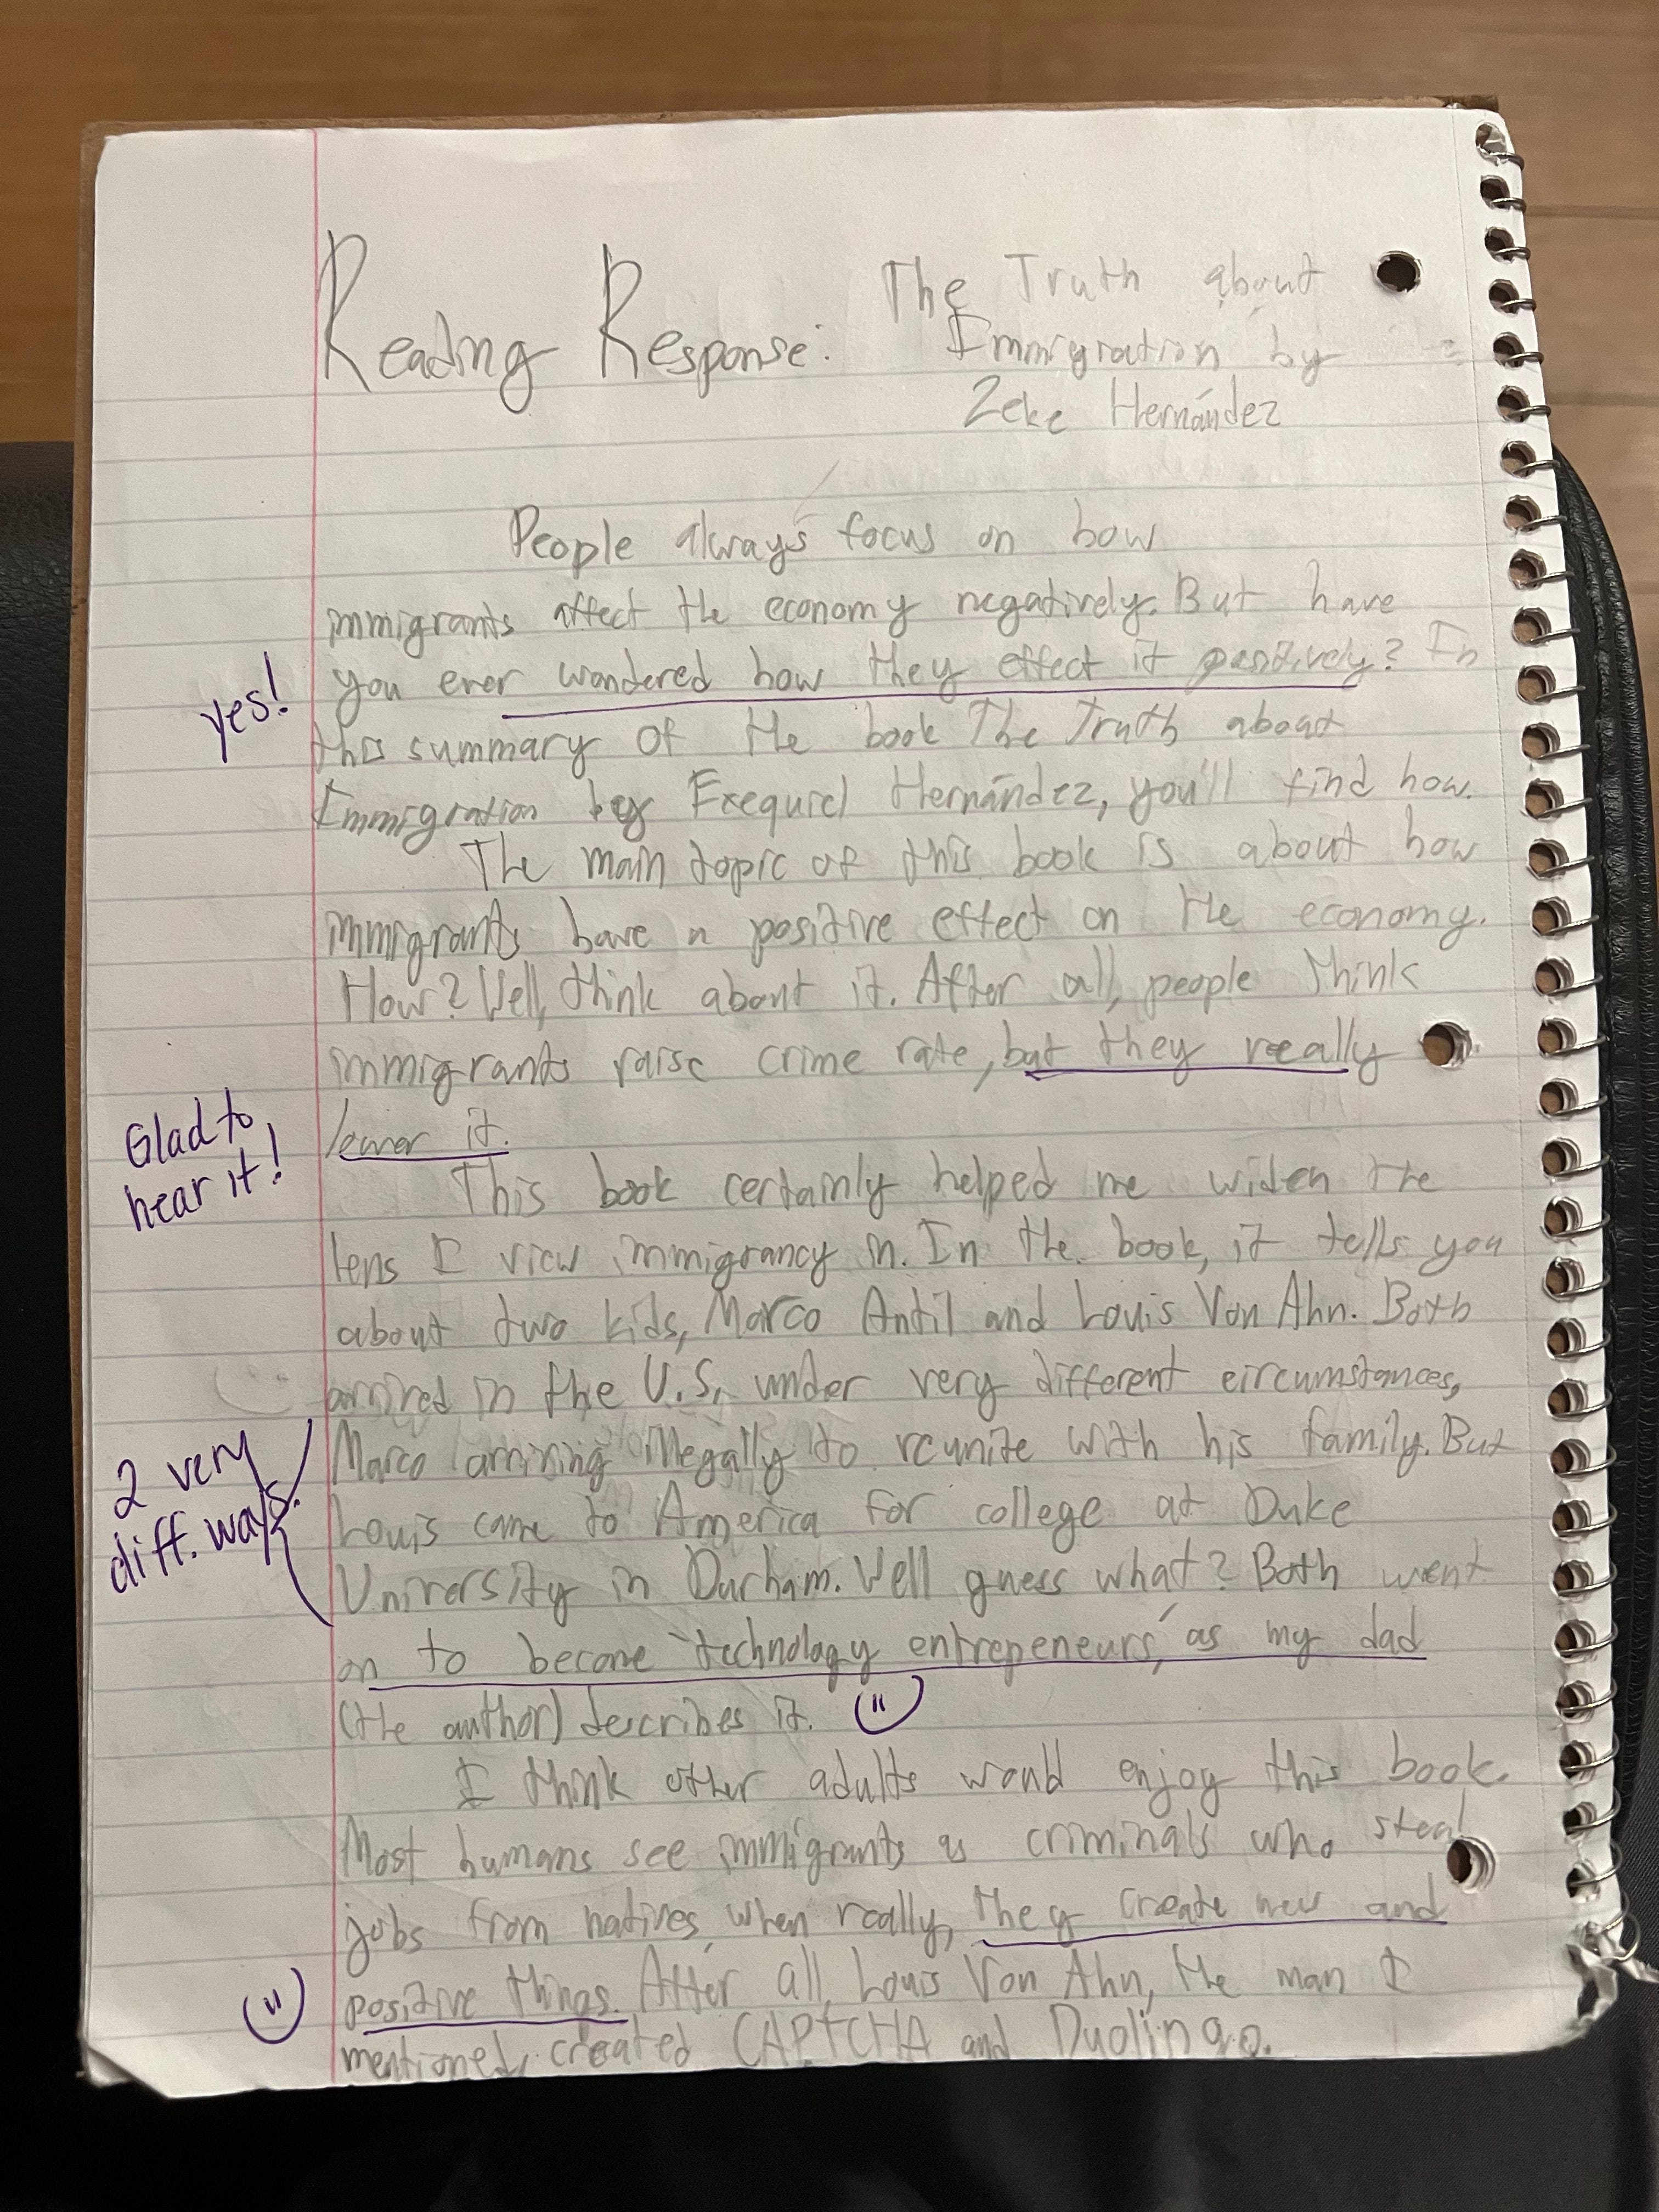 The Truth about
Reading Response: Immigration by
Zeke Hernández
People always focus on how
immigrants affect the economy negatively. But have
yes!
you ever wondered how they effect it positively? In
this summary of the book The Truth about
Immigration by Exequiel Hernández, you'll find how.
The main topic of this book is about how
immigrants have a positive effect on the economy.
How? Well, think about it. After all, people think
immigrants raise crime rate, but they really
Glad to
hear it!
lower it.
This book certainly helped me widen the
lens I view immigrancy in. In the book, it tells you
about two kids, Marco Antil and Louis Von Ahn. Both
arrived in the U.S, under very different circumstances,
2 very
diff. ways.
Marco arriving illegally to reunite with his family. But
Louis came to America for college at Duke
University in Durham. Well guess what? Both went
on to become "technology entrepeneurs," as my dad
(the author) describes it.
I think other adults would enjoy this book.
Most humans see immigrants as criminals who steal
jobs from natives, when really, they create new and
positive things. After all, Louis Von Ahn, the man I
mentioned, created CAPTCHA and Duolingo.